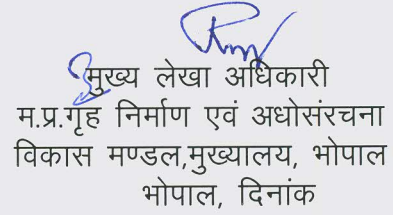 मुख्य लेखा अधिकारी
म.प्र.गृह निर्माण एवं अधोसंरचना
विकास मण्डल,मुख्यालय, भोपाल
भोपाल, दिनांक